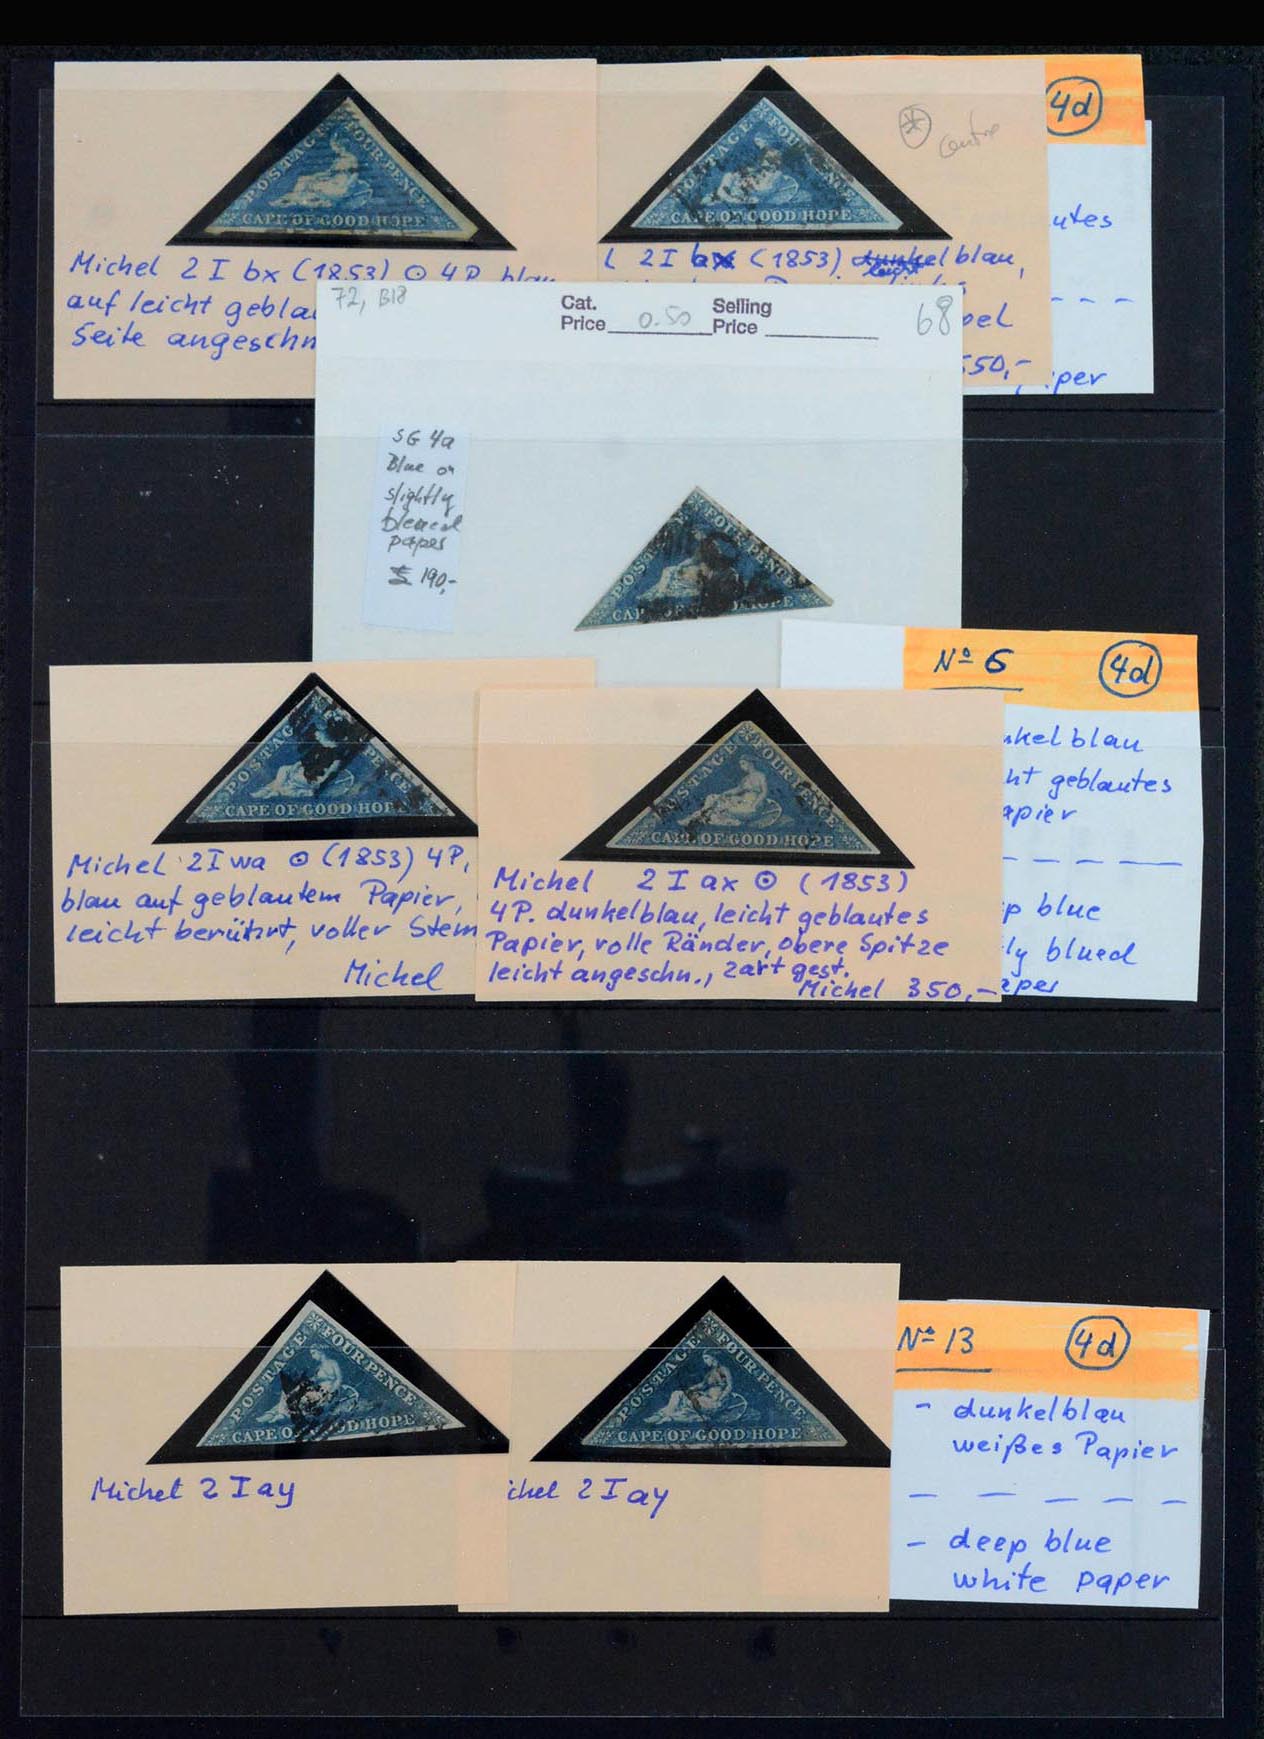 POSTAGE FOUR PENCE
CAPE OF GOOD HOPE
Michel 2 I bx (1853) ⊙ 4 P. blau
auf leicht gebla
Seite angeschn
POSTAGE FOUR PENCE
CAPE OF GOOD HOPE
centre
2 I bx (1853) leicht blau,
pel
550,-
4d
utes
— — —
per
72, B18
Cat.
Price 0.50
Selling
Price
68
SG 4a
Blue on
slightly
blened
paper
£ 190,-
POSTA FOUR PENCE
CAPE OF GOOD HOPE
POSTAG PENCE
CAPE OF GOOD HOPE
Michel 2 I wa ⊙ (1853) 4 P.
blau auf geblautem Papier,
leicht berührt, voller Stem
Michel
POSTAGE FOUR PENCE
CAPE OF GOOD HOPE
Michel 2 I ax ⊙ (1853)
4 P. dunkelblau, leicht geblautes
Papier, volle Ränder, obere Spitze
leicht angeschn., zart gest.
Michel 350,-
Nº 6 4d
nkelblau
ht geblautes
apier
— — — —
p blue
ly blued
aper
POSTAGE FOUR PENCE
CAPE OF GOOD HOPE
Michel 2 I ay
POSTAGE FOUR PENCE
CAPE OF GOOD HOPE
ichel 2 I ay
Nº 13 4d
- dunkelblau
weißes Papier
— — — — —
- deep blue
white paper